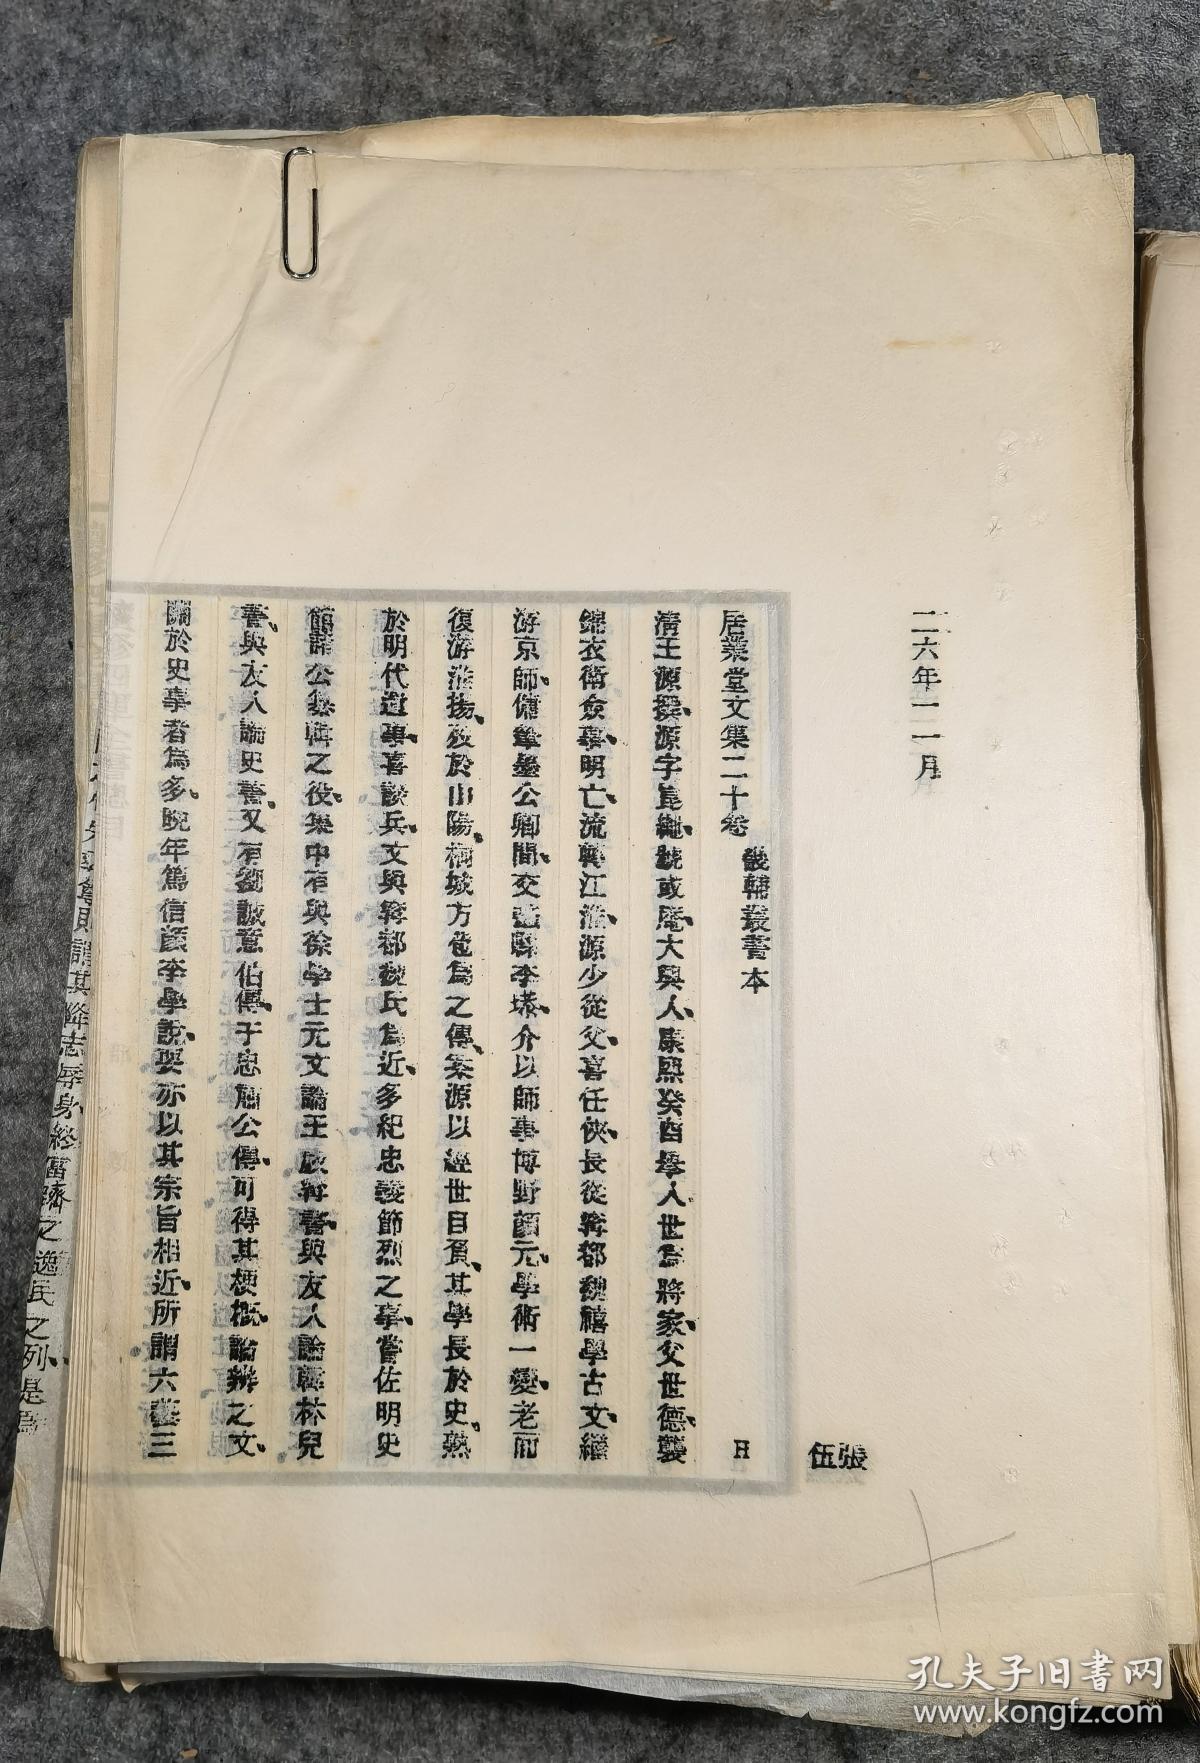 二六年一一月
張伍
居業堂文集二十卷 畿輔叢書本 H
清王源撰、源字崑繩、號或庵、大興人、康熙癸酉舉人、世爲將家、父世德、襲
錦衣衛僉事、明亡、流轉江淮、源少從父、喜任俠、長從寧都魏禧學古文、繼
游京師、傭筆墨公卿間、交蠡縣李塨、介以師事博野顏元、學術一變、老而
復游淮揚、歿於山陽、桐城方苞爲之傳、案源以經世自負、其學長於史、熟
於明代遺事、喜談兵、文與寧都魏氏爲近、多紀忠義節烈之事、嘗佐明史
館諸公纂輯之役、集中有與徐學士元文論王威寧書、與友人論韓林兒
書、與友人論史書、又有劉誠意伯傳、于忠肅公傳、可得其梗概、論辨之文、
關於史事者爲多、晚年篤信顏李學說、要亦以其宗旨相近、所謂六藝三
其降志辱身、終
之逸民之列、是爲
孔夫子旧書网
www.kongfz.com